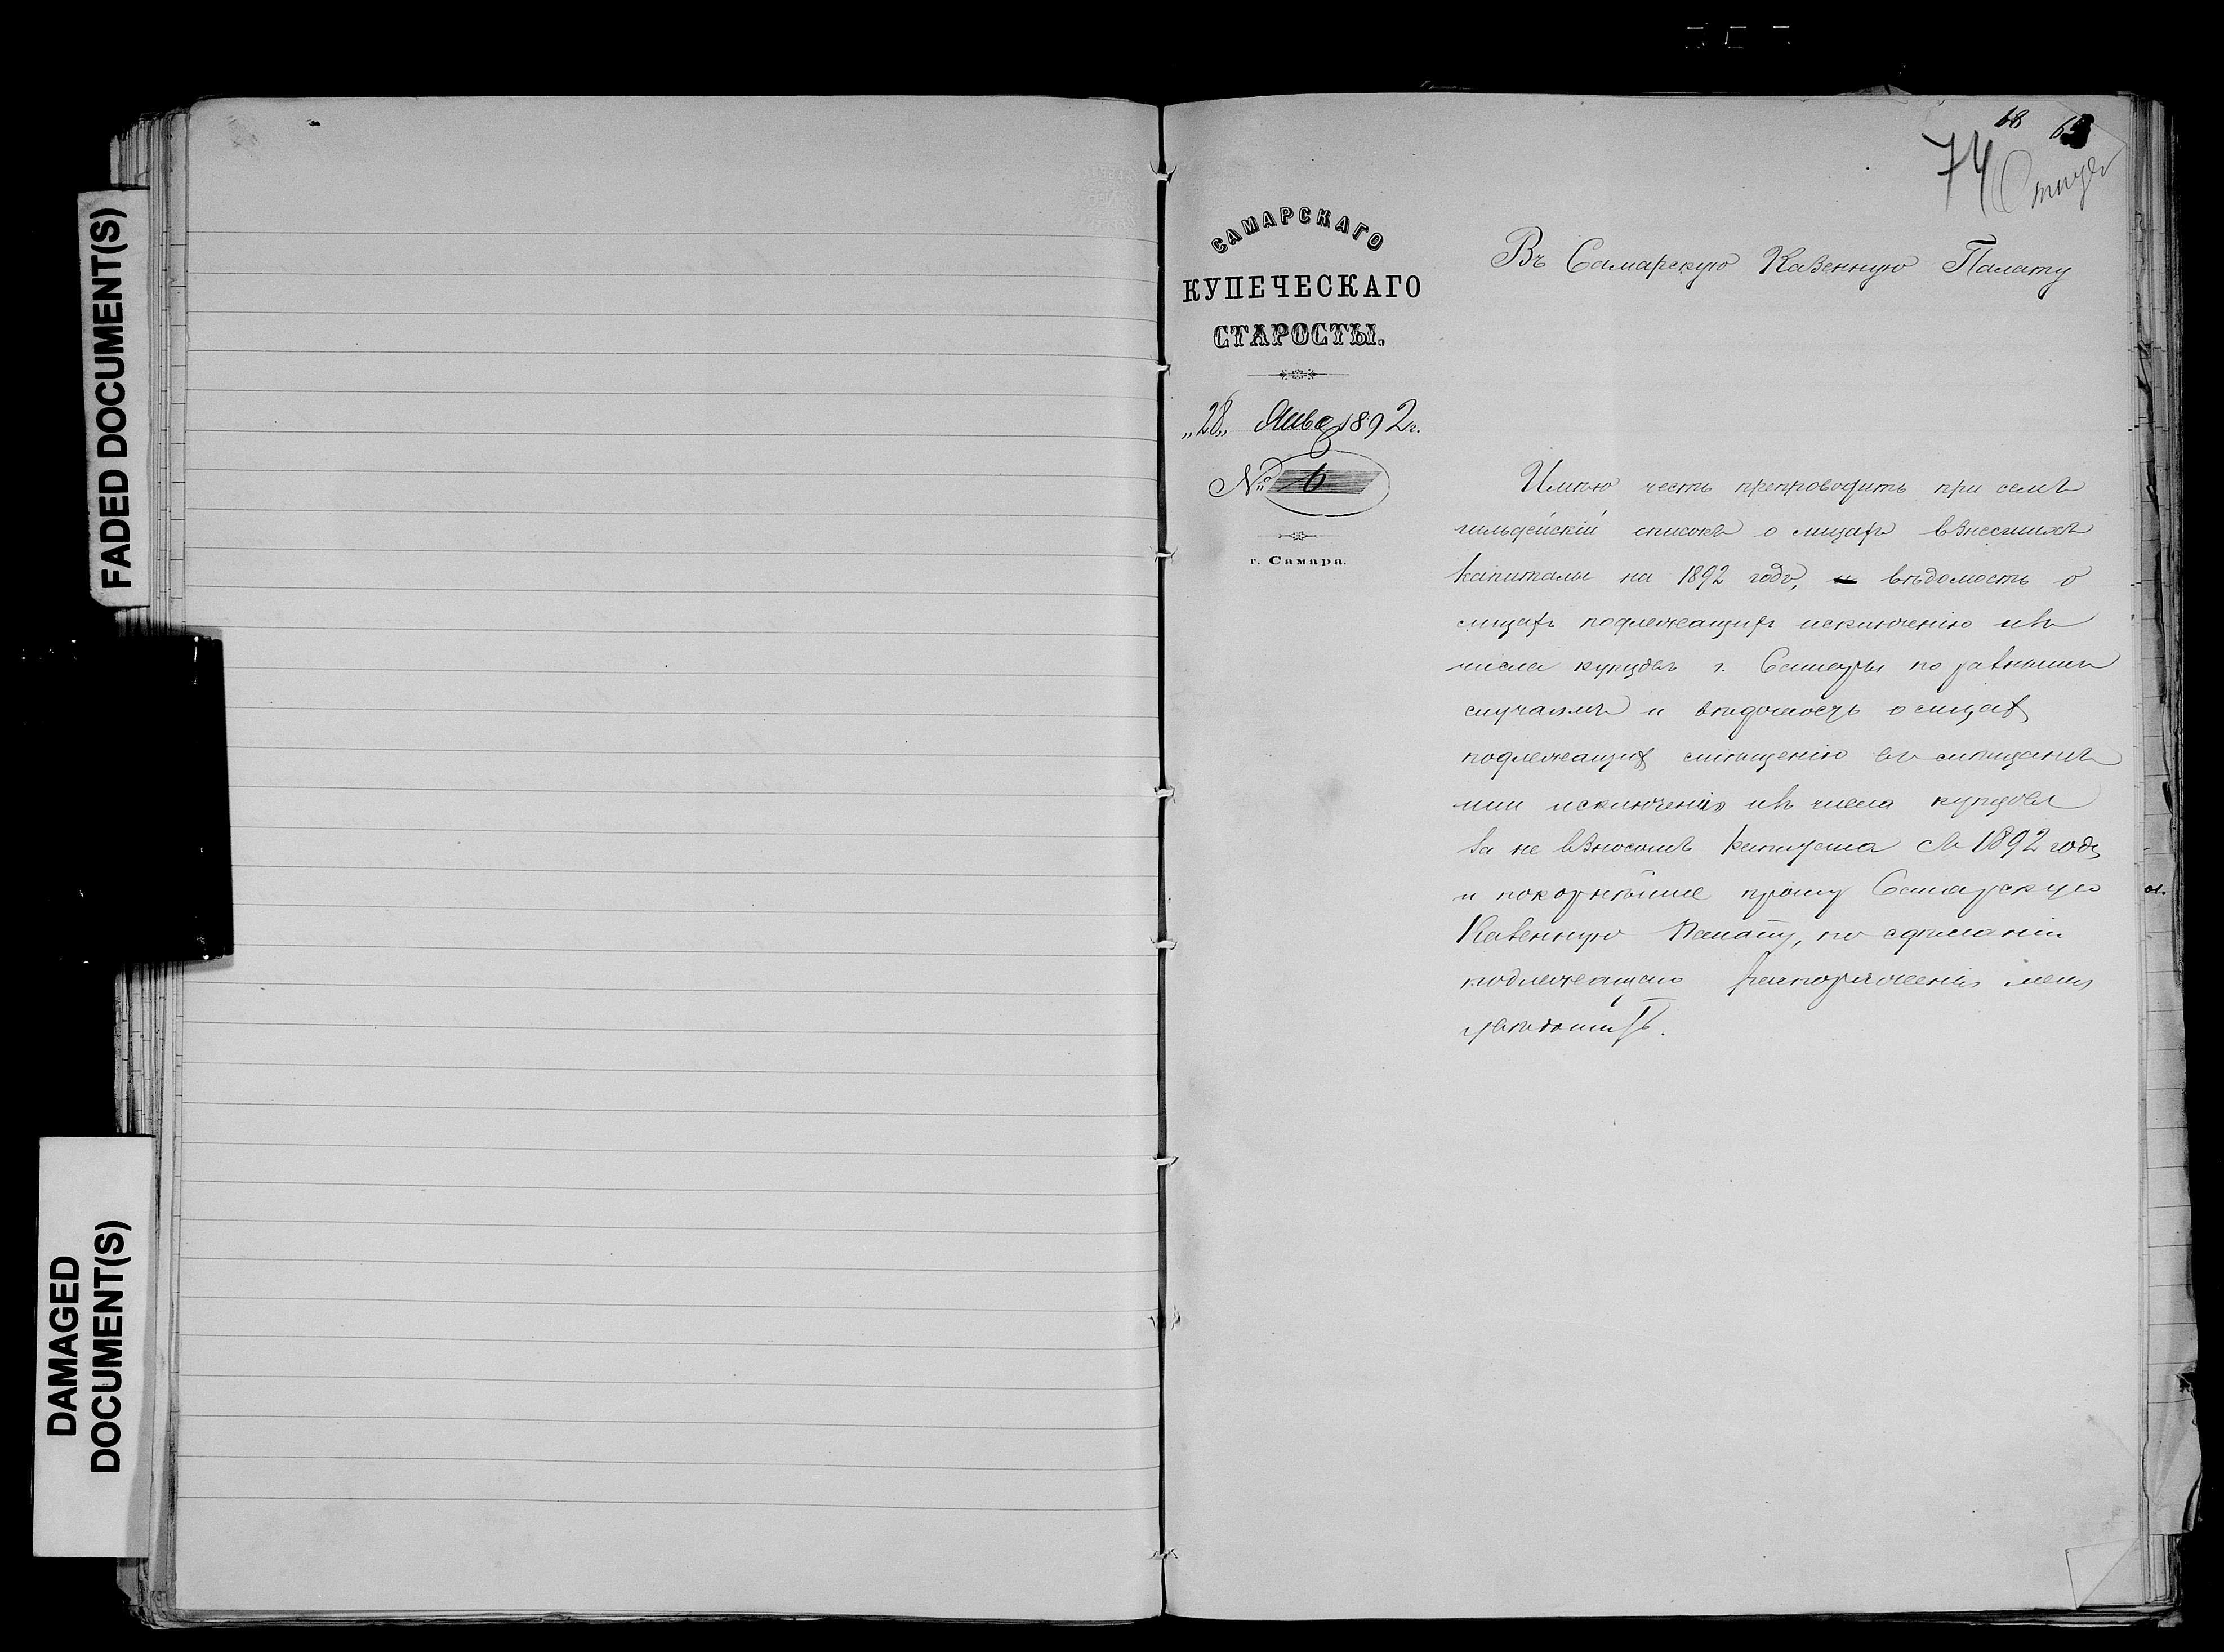 FADED DOCUMENT(S)
DAMAGED
DOCUMENT(S)
68
74
САМАРСКАГО
КУПЕЧЕСКАГО
СТАРОСТЫ.
„28„ Янв 1892 г.
№ 6
г. Самара.
Въ Самарскую Казенную Палату
Имѣю честь препроводить при семъ
гильдейскій списокъ о лицахъ взнесшихъ
капиталы на 1892 годъ, вѣдомость о
лицахъ подлежащихъ исключенію изъ
числа купцовъ г. Самары по разнымъ
случаямъ и вѣдомость о лицахъ
подлежащихъ въ мѣщане
или исключенію изъ числа купцовъ
за не взносомъ капитала съ 1892 года
и покорнѣйше прошу Самарскую
Казенную Палату, по сдѣланіи
подлежащаго распоряженія меня
увѣдомить.